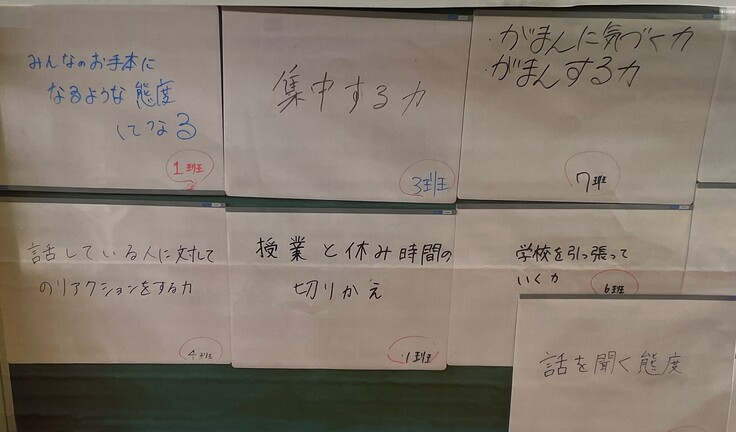 みんなのお手本に
なるような態度
になる
1班
集中する力
3班
・がまんに気づく力
・がまんする力
7班
話している人に対して
のリアクションをする力
4班
授業と休み時間の
切りかえ
1班
学校を引っ張って
いく力
6班
話を聞く態度